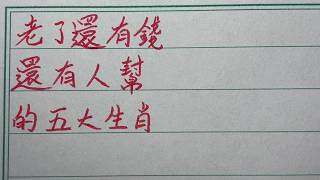 老了還有錢
還有人幫
的五大生肖